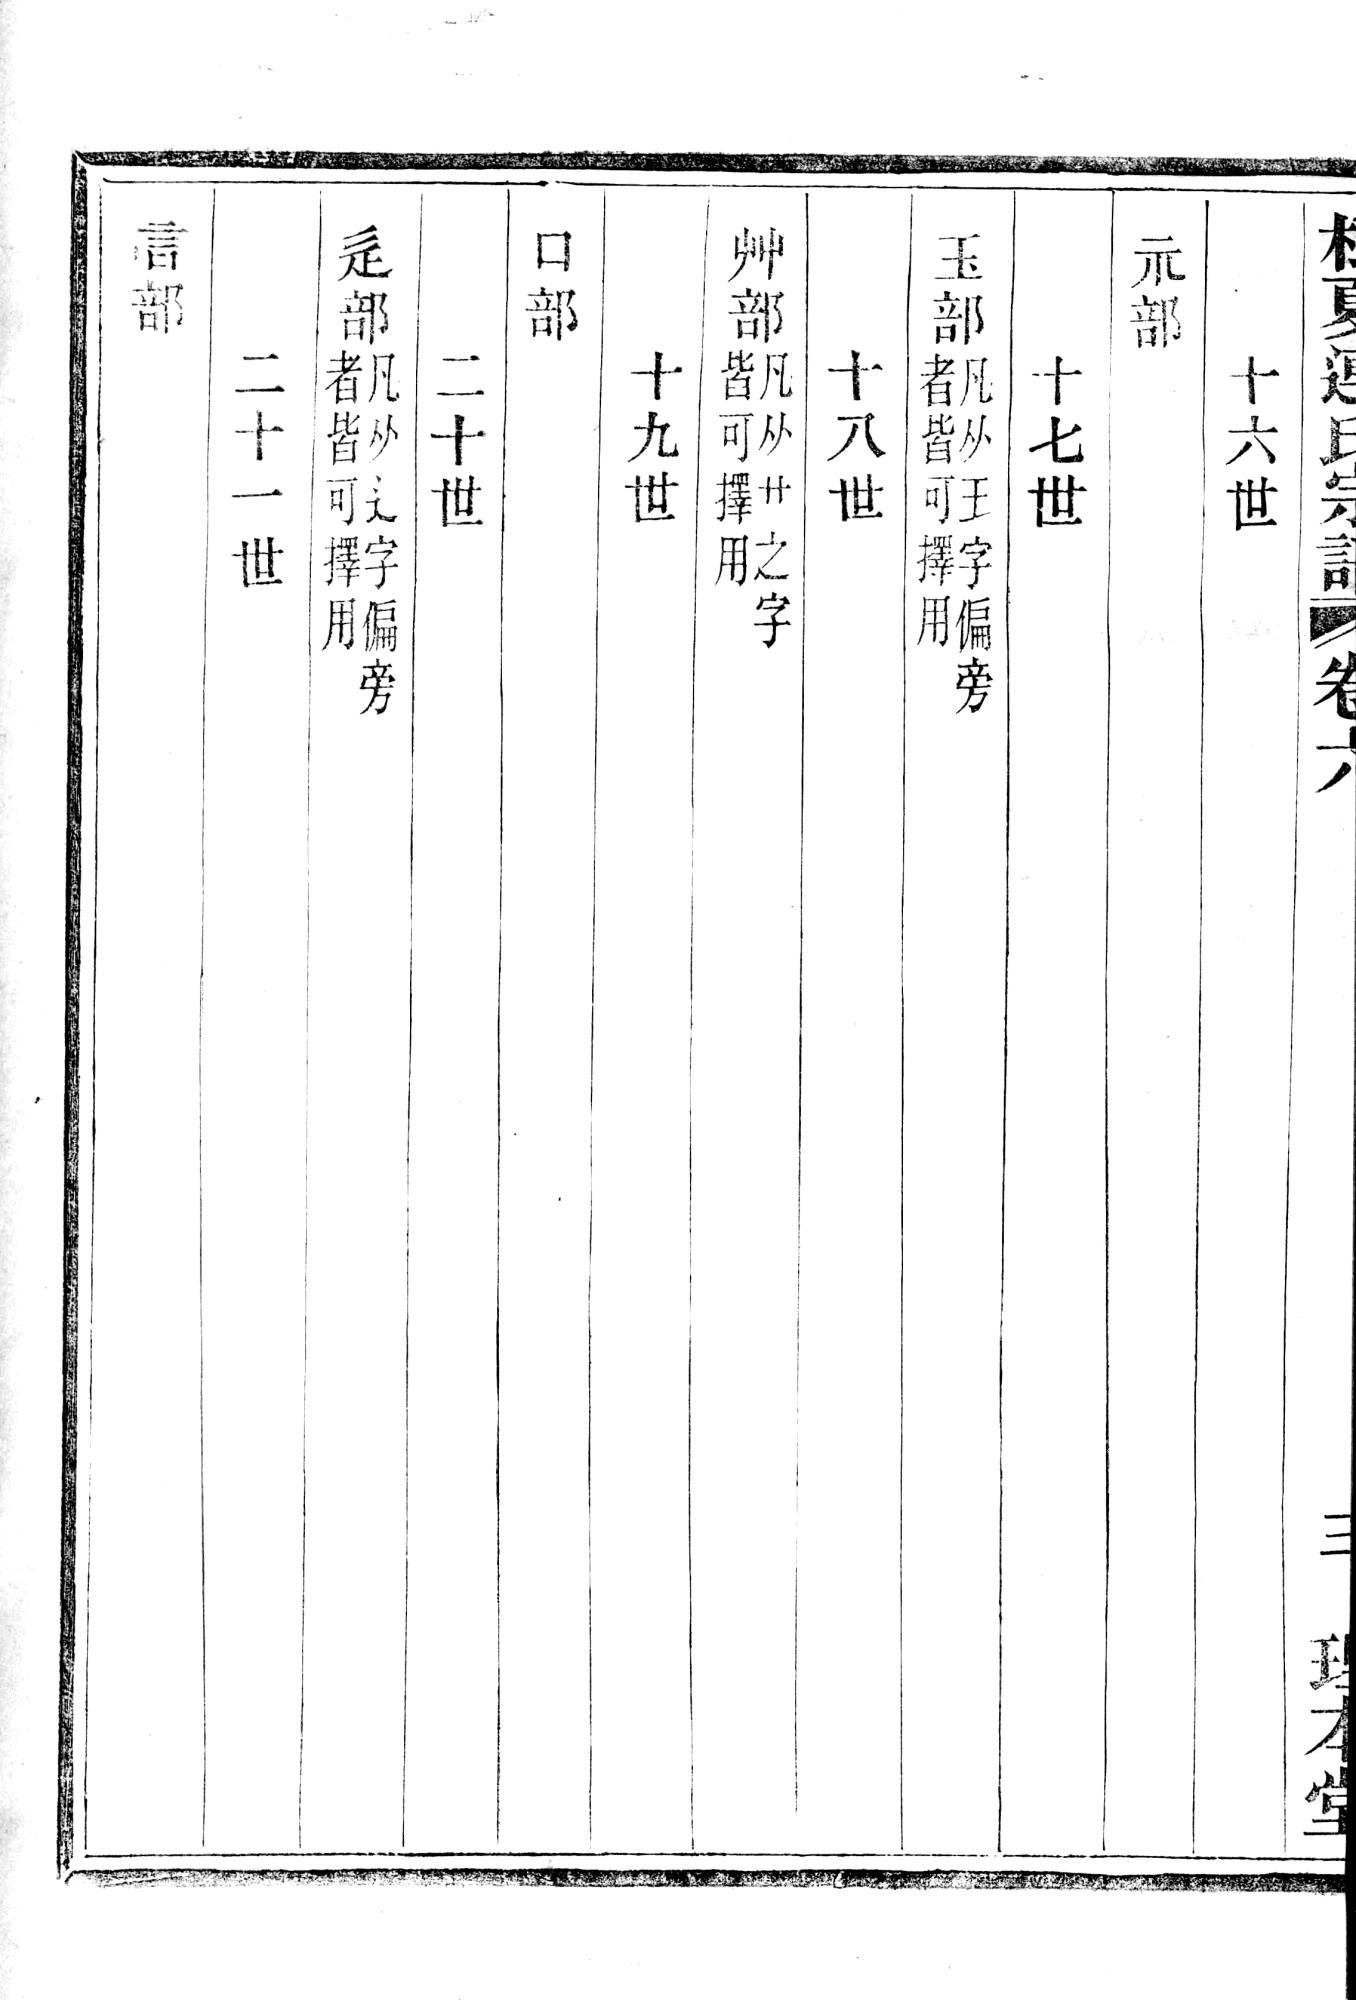 氏宗譜 卷六 三 理本堂
十六世
示部
十七世
玉部凡从王字偏旁者皆可擇用
十八世
艸部凡从艹之字皆可擇用
十九世
口部
二十世
辵部凡从辶字偏旁者皆可擇用
二十一世
言部